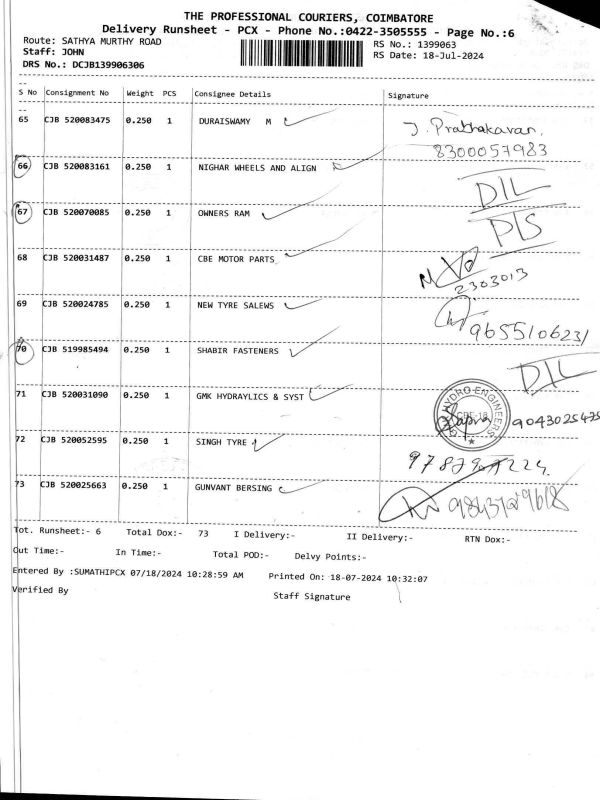 THE PROFESSIONAL COURIERS, COIMBATORE
Delivery Runsheet - PCX - Phone No.:0422-3505555 - Page No.:6
Route: SATHYA MURTHY ROAD RS No.: 1399063
Staff: JOHN RS Date: 18-Jul-2024
DRS No.: DCJB139906306
S No Consignment No Weight PCS Consignee Details Signature
65 CJB 520083475 0.250 1 DURAISWAMY M J. Prabhakaran.
8300057983
66 CJB 520083161 0.250 1 NIGHAR WHEELS AND ALIGN D/L
67 CJB 520070085 0.250 1 OWNERS RAM P/S
68 CJB 520031487 0.250 1 CBE MOTOR PARTS
2303013
69 CJB 520024785 0.250 1 NEW TYRE SALEWS
9655106231
70 CJB 519985494 0.250 1 SHABIR FASTENERS D/L
71 CJB 520031090 0.250 1 GMK HYDRAYLICS & SYST HYDRO ENGINEERS CBE-18
72 CJB 520052595 0.250 1 SINGH TYRE
73 CJB 520025663 0.250 1 GUNVANT BERSING
Tot. Runsheet:- 6 Total Dox:- 73 I Delivery:- II Delivery:- RTN Dox:-
Out Time:- In Time:- Total POD:- Delvy Points:-
Entered By :SUMATHIPCX 07/18/2024 10:28:59 AM Printed On: 18-07-2024 10:32:07
Verified By Staff Signature